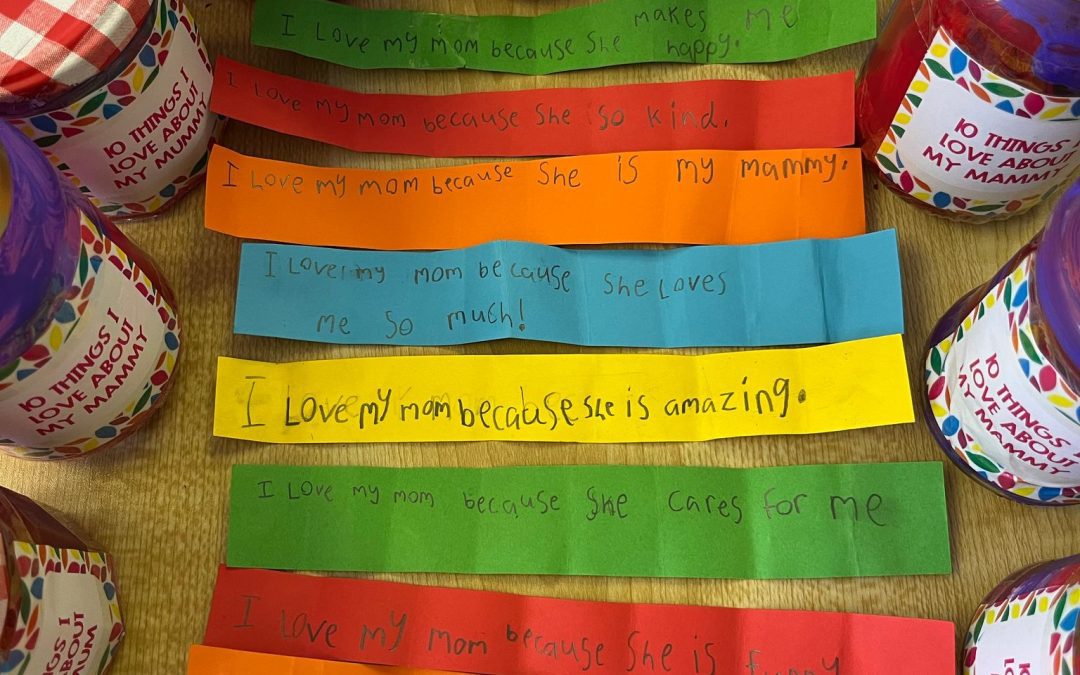 I Love my mom because She makes me
happy.
I Love my mom because She is so kind.
I Love my mom because She is my mammy.
I Love my mom because She Loves
me so much!
I Love my mom because She is amazing.
I Love my mom because She cares for me
I Love my mom because She is funny
10 THINGS I
LOVE ABOUT
MY MUMMY
10 THINGS I
LOVE ABOUT
MY MAMMY
10 THINGS I
LOVE ABOUT
MY MAMMY
10 THINGS I
LOVE ABOUT
MY MAMMY
THINGS I
ABOUT
MUM